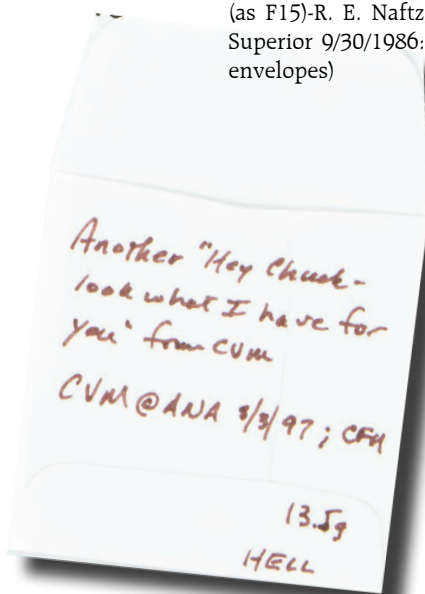 (as F15)-R. E. Naftz
Superior 9/30/1986:
envelopes)
Another "Hey Chuck-
look what I have for
you" from CVM
CVM@ANA 8/3/97; CFH
13.5g
HELL